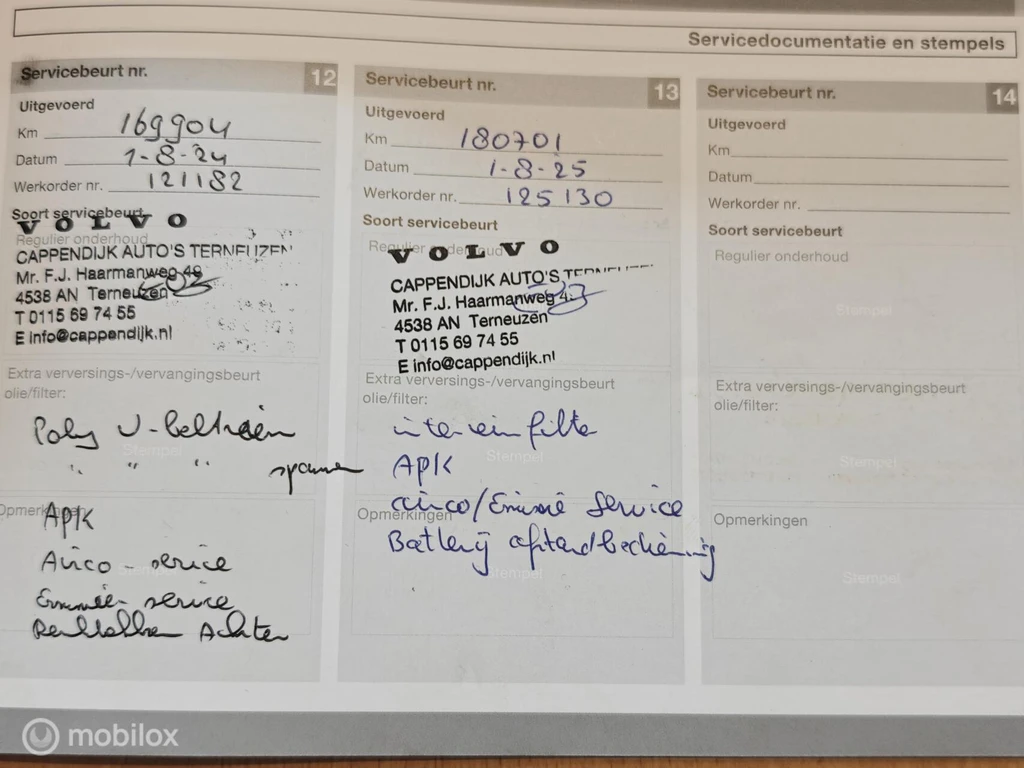 Servicedocumentatie en stempels
Servicebeurt nr. 12
Uitgevoerd
Km 169904
Datum 1-8-24
Werkorder nr. 121182
Soort servicebeurt
VOLVO
Regulier onderhoud
CAPPENDIJK AUTO'S TERNEUZEN
Mr. F.J. Haarmanweg 49
4538 AN Terneuzen
T 0115 69 74 55
E info@cappendijk.nl
Extra verversings-/vervangingsbeurt
olie/filter:
Poly V-beltriem
" " " spanner
Stempel
Opmerkingen
APK
Airco - service
Stempel
Emissie - service
Remblokken Achter
Servicebeurt nr. 13
Uitgevoerd
Km 180701
Datum 1-8-25
Werkorder nr. 125130
Soort servicebeurt
Regulier onderhoud
VOLVO
CAPPENDIJK AUTO'S TERNEUZEN
Mr. F.J. Haarmanweg 4
4538 AN Terneuzen
T 0115 69 74 55
E info@cappendijk.nl
Extra verversings-/vervangingsbeurt
olie/filter:
interieurfilter
APK
Stempel
airco/Emissie Service
Opmerkingen
Batterij afstandbediening
Stempel
Servicebeurt nr. 14
Uitgevoerd
Km
Datum
Werkorder nr.
Soort servicebeurt
Regulier onderhoud
Stempel
Extra verversings-/vervangingsbeurt
olie/filter:
Stempel
Opmerkingen
Stempel
mobilox